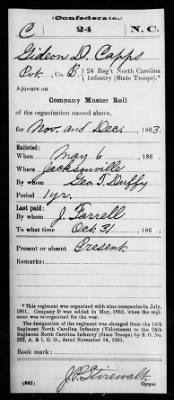 (Confederate.)
C 24 N. C.
Gideon D. Capps
Pvt., Co. B, 24 Reg't North Carolina
Infantry (State Troops).*
Appears on
Company Muster Roll
of the organization named above,
for Nov. and Dec., 1863.
Enlisted:
When May 6, 186 .
Where Jacksonville
By whom Geo. T. Duffy
Period 1 yr.
Last paid:
By whom J. Farrell
To what time Oct 31, 186 .
Present or absent Present
Remarks:
* This regiment was organized with nine companies in July,
1861. Company D was added in May, 1862, when the regiment
was re-organized for the war.
The designation of the regiment was changed from the 14th
Regiment North Carolina Infantry (Volunteers) to the 24th
Regiment North Carolina Infantry (State Troops) by S. O. No.
222, A. & I. G. O., dated November 14, 1861.
Book mark:
(642) J. P. Stirewalt
Copyist.